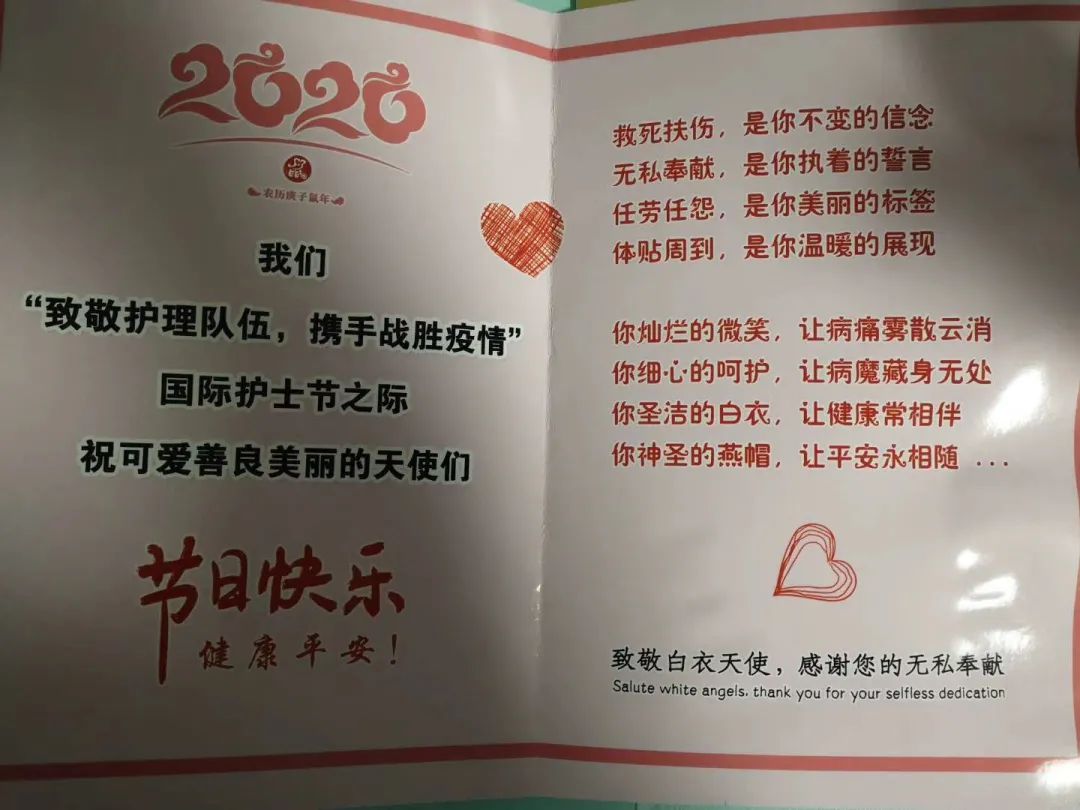 2020
农历庚子鼠年
我们
“致敬护理队伍，携手战胜疫情”
国际护士节之际
祝可爱善良美丽的天使们
节日快乐
健康平安！
救死扶伤，是你不变的信念
无私奉献，是你执着的誓言
任劳任怨，是你美丽的标签
体贴周到，是你温暖的展现
你灿烂的微笑，让病痛雾散云消
你细心的呵护，让病魔藏身无处
你圣洁的白衣，让健康常相伴
你神圣的燕帽，让平安永相随 ...
致敬白衣天使，感谢您的无私奉献
Salute white angels. thank you for your selfless dedication